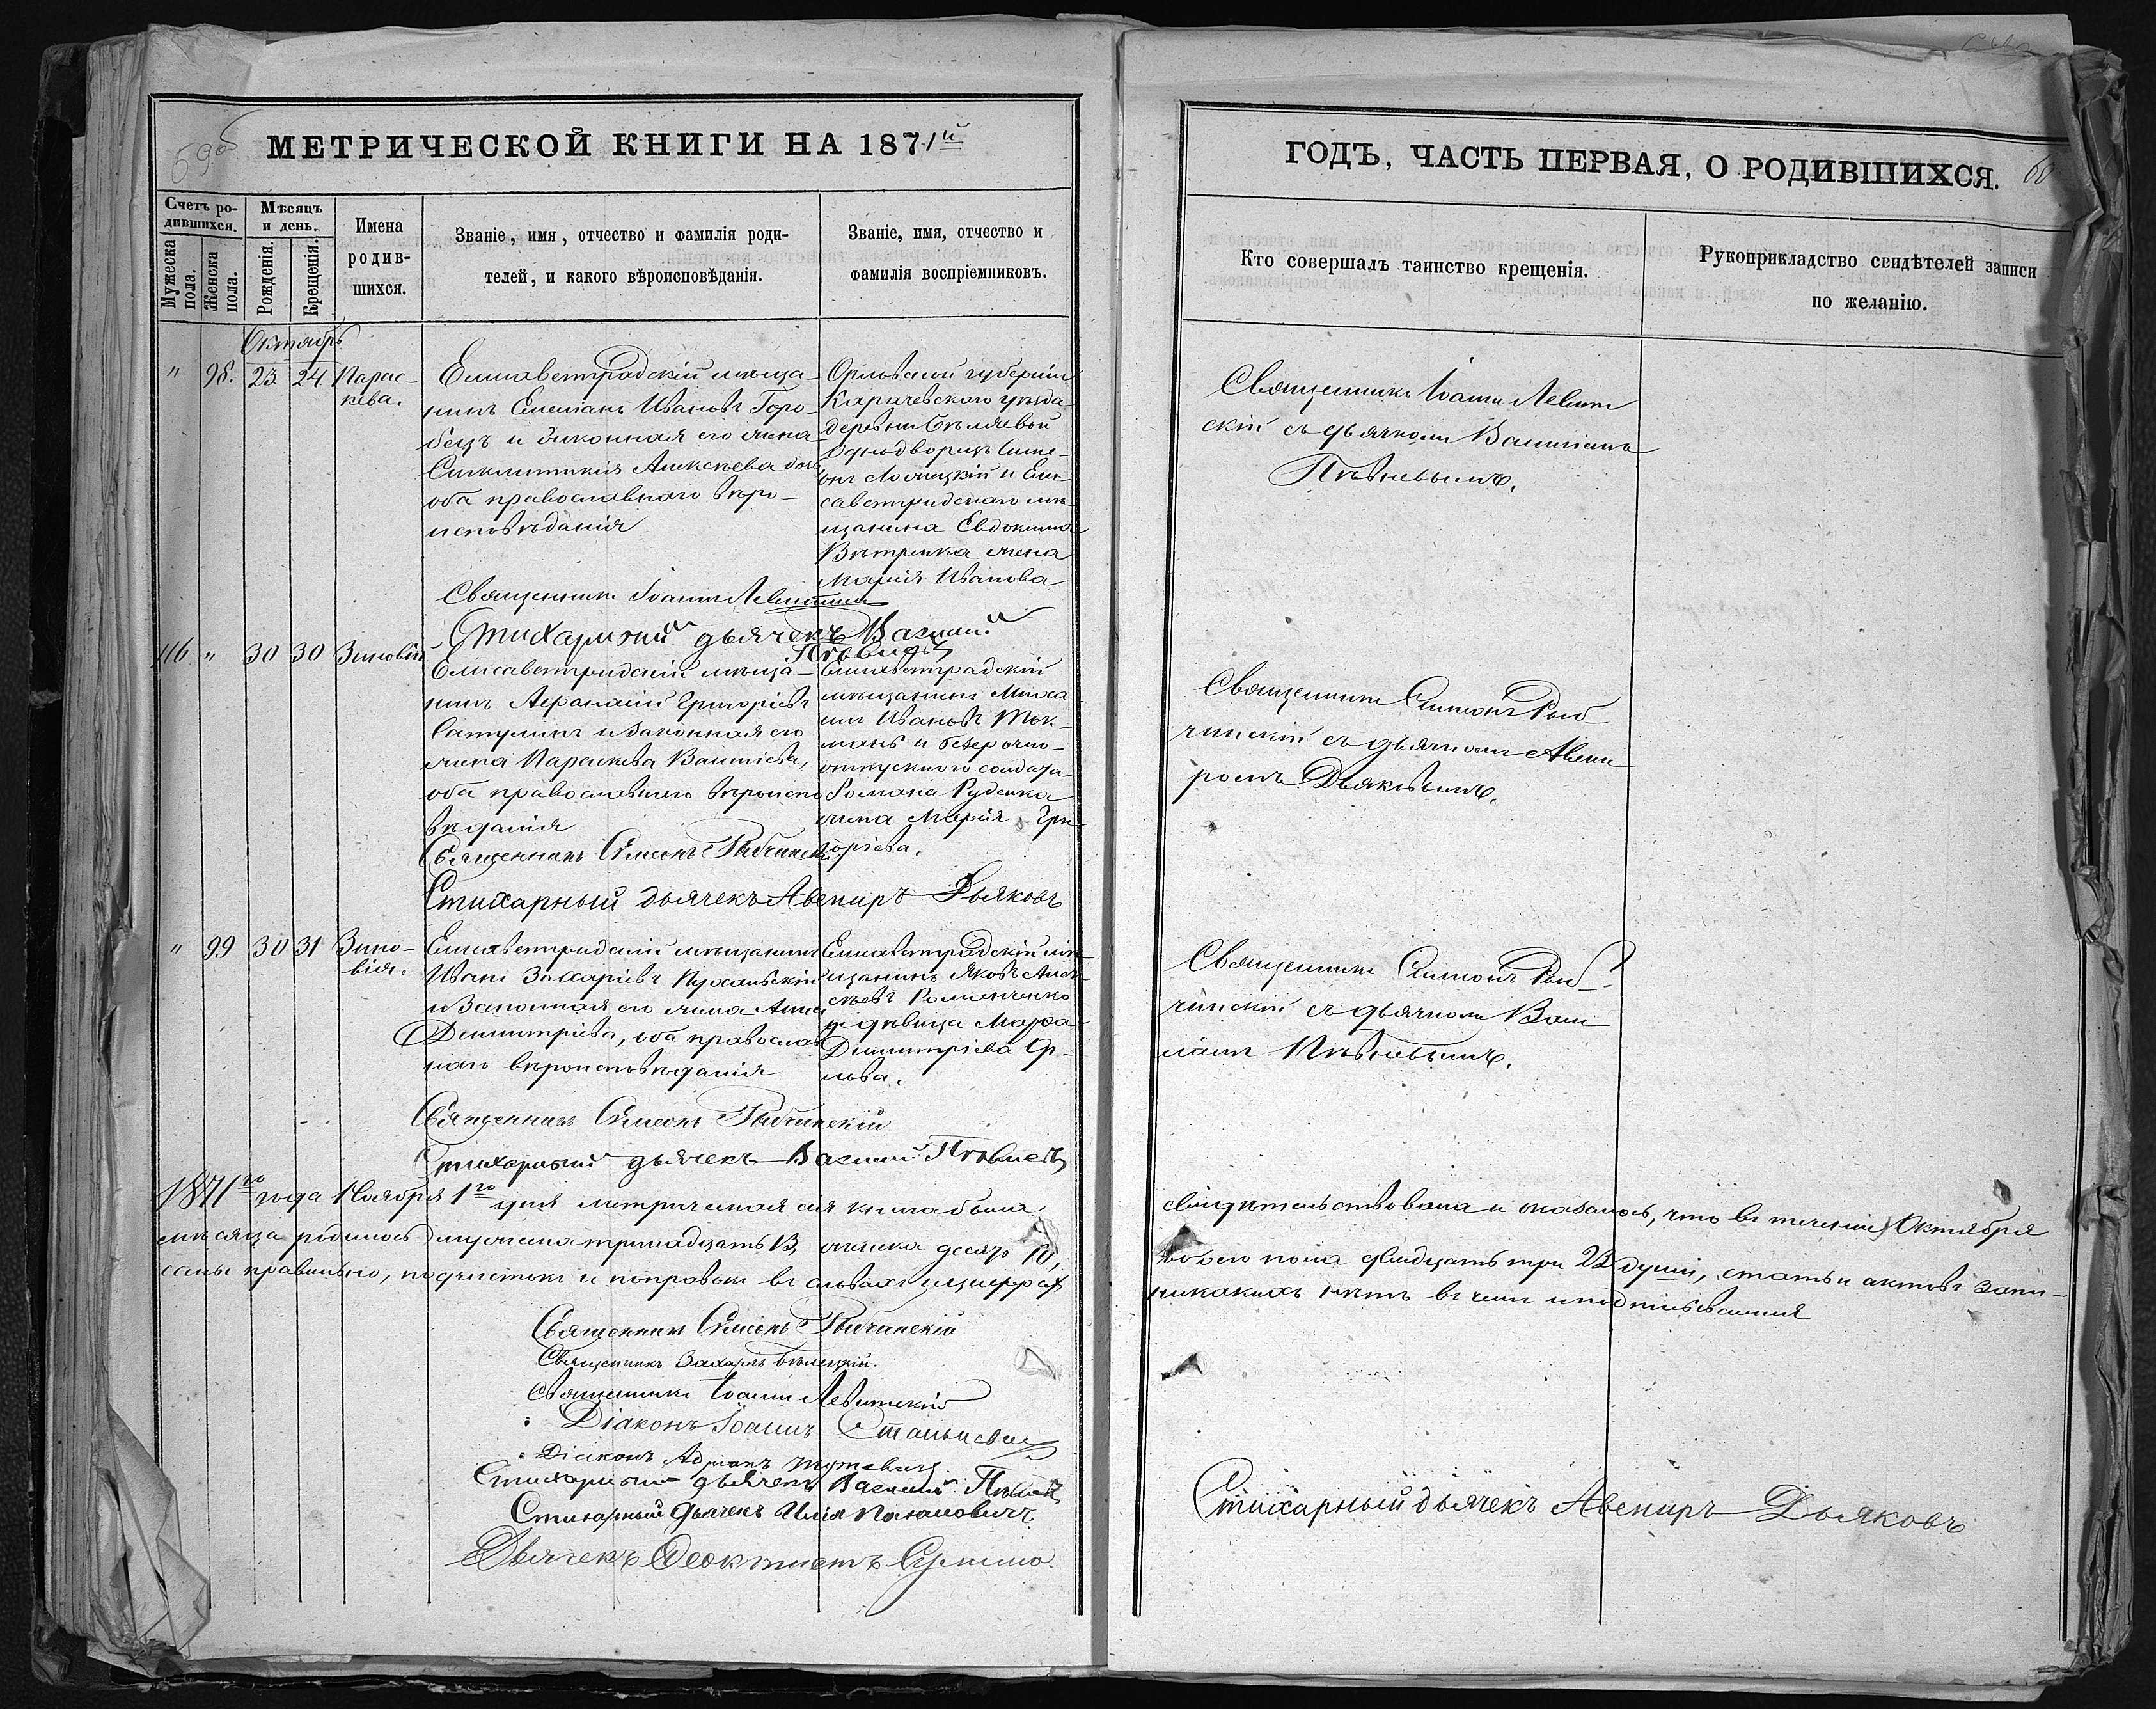 59об
МЕТРИЧЕСКОЙ КНИГИ НА 1871й
Счетъ ро-
дившихся.
Мужеска пола.
Женска пола.
Мѣсяцъ
и день.
Рожденія.
Крещенія.
Имена
родив-
шихся.
Званіе, имя, отчество и фамилія роди-
телей, и какого вѣроисповѣданія.
Званіе, имя, отчество и
фамилія воспріемниковъ.
Октябрь
" 98. 23 24. Парас-
кева.
Елисаветградскій мѣща-
нинъ Емельянъ Ивановъ Горо-
бецъ и законная его жена
Синклитикія Алексѣева
оба православнаго вѣро-
исповѣданія
Орловской губерніи
Карачевскаго уѣзда
деревни Бѣляевой
однодворецъ Симе-
онъ и Ели-
саветградскаго мѣ-
щанина Евдокима
Вѣтренка жена
Марія Иванова
Священникъ Іоаннъ Левитскій
Стихарный дьячекъ Василій
Пѣвневъ
116 " 30 30 Зиновій
Елисаветградскій мѣща-
нинъ Афанасій Григорьевъ
Ватулинъ и законная его
жена Параскева Васильева,
оба православнаго вѣроиспо
вѣданія
Елисаветградскій
мѣщанинъ Миха
илъ Ивановъ Ток-
мань и безсрочно-
отпускнаго солдата
Романа Руденка
жена Марія Гри-
горіева.
Священникъ Симеонъ Рыбчинскій
Стихарный дьячекъ Авениръ Дьяковъ
" 99 30 31 Зино-
вія.
Елисаветградскій мѣщанинъ
Иванъ Захаріевъ Пухальскій
и законная его жена Анна
Димитріева, оба православ
наго вѣроисповѣданія
Елисаветградскій мѣ-
щанинъ Яковъ Алек
сѣевъ Романченко
и дѣвица Марфа
Димитріева Ор-
лова.
Священникъ Симеонъ Рыбчинскій
Стихарный дьячекъ Василій Пѣвневъ
1871го года Ноября 1го дня метрическая сія книга была
мѣсяца родилось мужеска тринадцать 13, женска десять 10,
саны правильно, подчистокъ и поправокъ въ словахъ и цифрахъ
Священникъ Симеонъ Рыбчинскій
Священникъ Захарія Бѣлецкій.
Священникъ Іоаннъ Левитскій
Діаконъ Іоаннъ Станиславъ
Діаконъ Адріанъ
Стихарный дьячекъ Василій Пѣвневъ
Стихарный дьячекъ Илія
Дьячекъ Феоктистъ
ГОДЪ, ЧАСТЬ ПЕРВАЯ, О РОДИВШИХСЯ.
60
Кто совершалъ таинство крещенія.
Рукоприкладство свидѣтелей записи
по желанію.
Священникъ Іоаннъ Левит
скій съ дьячкомъ Василіемъ
Пѣвневымъ.
Священникъ Симеонъ Рыб-
чинскій съ дьячкомъ Авени
ромъ Дьяковымъ.
Священникъ Симеонъ Рыб-
чинскій съ дьячкомъ Васи-
ліемъ Пѣвневымъ.
свидѣтельствована и оказалось, что въ теченіи Октября
обоего пола двадцать три 23 души, статьи актовъ запи-
никакихъ нѣтъ въ чемъ и подписываемся
Стихарный дьячекъ Авениръ Дьяковъ